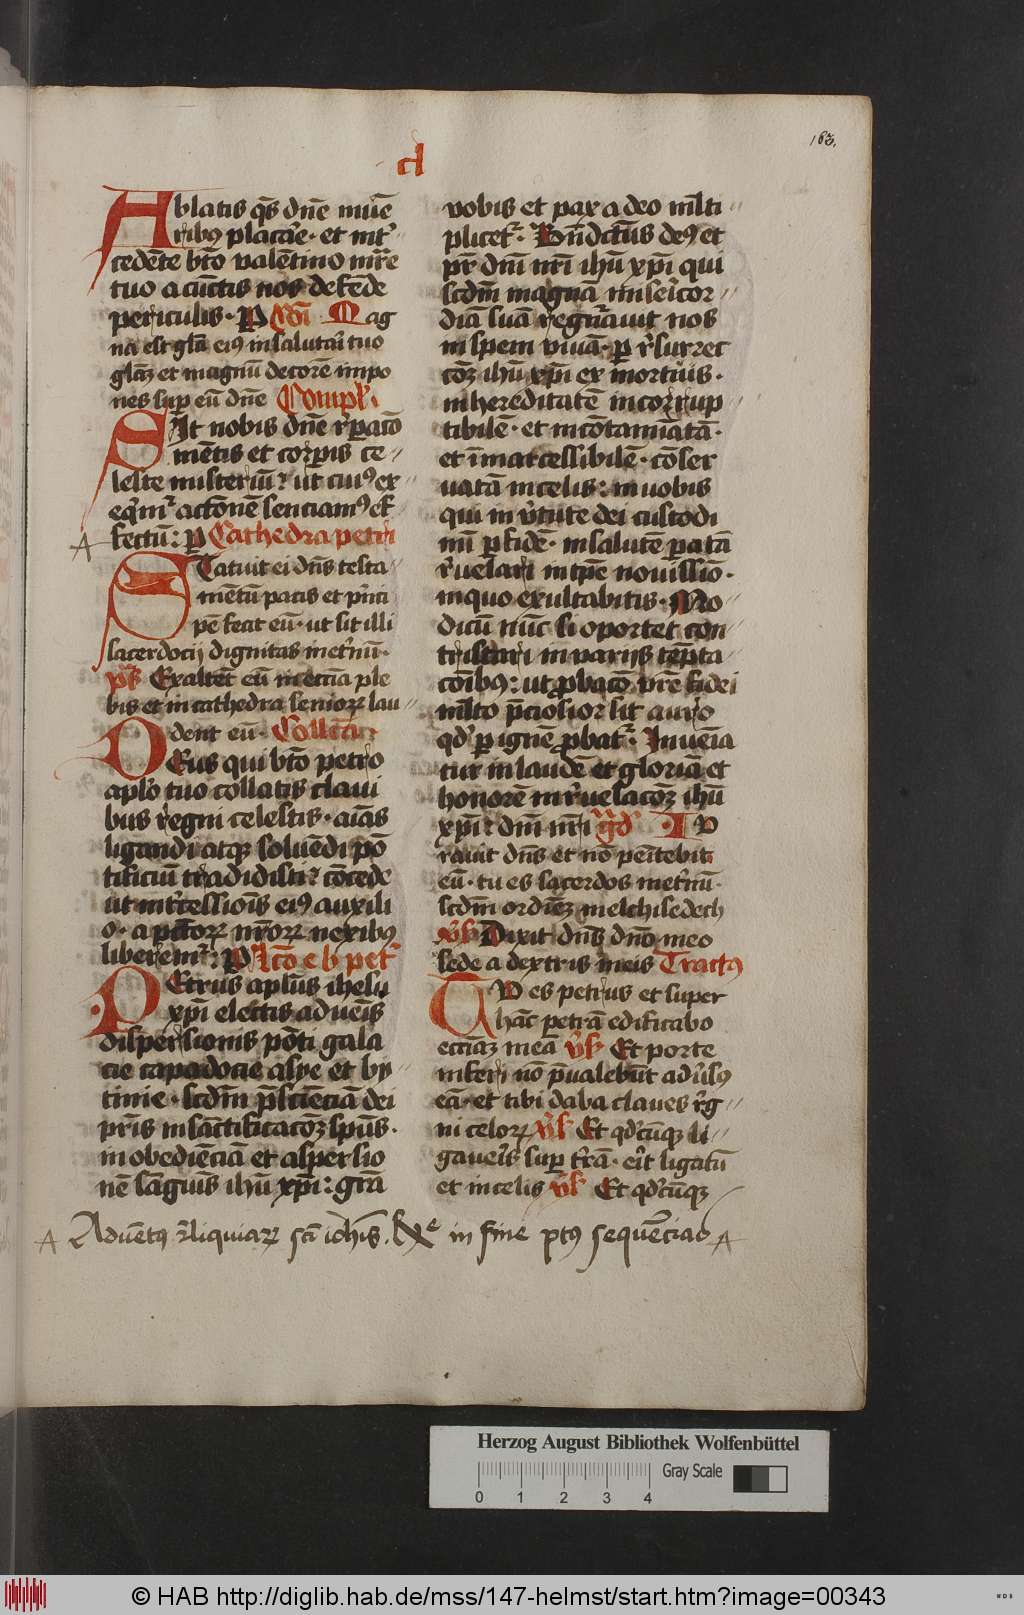 163.
cl
Ablatis q̄s dn̄e mūe
ribꝰ placāe · et int͛
cedēte bt̄o valentino mr̄e
tuo a cūctis nos defēde
periculis · P Cōi Mag
na est gl̄a eiꝰ in salutari tuo
gl̄aꝫ et magnū decorē impo
nes sup eū dn̄e Compl̄.
Sit nobis dn̄e r̄paco̅
mētis et corꝑis ce
leste misteriū: ut cuiꝰ ex
eq̄mur actōnē senciamꝰ ef
fectū: ꝑ Cathedra petri
Statuit ei dn̄s testa
mētū pacis et p̄nci
pē fecit eū · ut sit illi
sacerdocij dignitas inet̄nū ·
p̄s Exaltēt eū in ecc̄ia ple
bis et in cathedra senioꝝ lau
dent eū · Collectā:
Deus qui bt̄o petro
apl̄o tuo collatis claui
bus regni celestis · aīas
ligandi atqꝫ soluēdi pō
tificiū tradidisti: cōcede
ut int̄cessiois eiꝰ auxili
o · a pctōꝝ nr̄oꝝ nexibꝰ
liberem͛: P Lc̄o e b pet͛
Petrus apl̄us ihesu
xp̄i electis aduēis
dispersionis pōti gala
cie capadocie asye et by
tinie · scdm̄ p̄sciēciā dei
pr̄is in sāctificacōꝫ sp̄us ·
in obediēciā et aspersio
nē sāguis ihū xp̄i: gr̄a
vobis et pax a deo ml̄ti
plicet͛ · Bn̄dictus deꝰ et
pr̄ dn̄i nr̄i ihū xp̄i qui
scdm̄ magnā misēicor
diā suā regn̄auit nos
in spem viuā · ꝑ r̄surrec
cōꝫ ihū xp̄i ex mortuis ·
in hereditatē incorrup
tibilē · et incōtaminatā ·
et īmarcessibilē · cōser
uatā in celis: in uobis
qui in v̄tute dei custodi
mī ꝑ fidē · in salutē paratā
r̄uelari in tp̄e nouissīo ·
in quo exultabitis · Mo
dicū nūc si oportet con
tristari in varijs tēpta
cōibꝰ: ut ꝓbaco̅ vr̄e fidei
ml̄to p̄ciosior sit auro
qd̄ ꝑ ignē ꝓbat͛ · Inuēia
tur in laudē et gloriā et
honorē in r̄uelacōꝫ ihū
xp̄i: dn̄i nr̄i gd̄ · Iu
rauit dn̄s et nō penitebit
eū · tu es sacerdos inet̄nū ·
scdm̄ ordīeꝫ melchisedech
v̄s Dixit dn̄s dn̄o meo
sede a dextris meis Tractꝰ
Tu es petrus et super
hāc petrā edificabo
ecc̄iaꝫ meā v̄s Et porte
inferi nō p̄ualebūt adūsꝰ
eā · et tibi dabo claues r̄g
ni celoꝝ v̄s Et qd̄cūqꝫ li
gaueis sup t̄rā · eīt ligatū
et in celis v̄s Et qd̄cūqꝫ
A Aduētꝰ r̄liquiaꝝ sc̄i ioh̄is . in fine ptꝰ sequēciaꝝ A
Herzog August Bibliothek Wolfenbüttel
Gray Scale
0 1 2 3 4
© HAB http://diglib.hab.de/mss/147-helmst/start.htm?image=00343